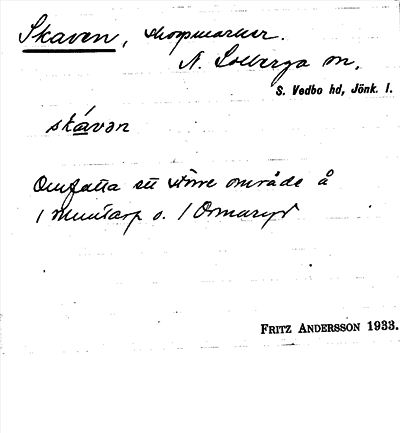 Skaven, skogsmarker.
N. Solberga sn.
S. Vedbo hd, Jönk. l.
skávən
Omfatta ett större område å
1 Muntarp o. 1 Ormaryd
FRITZ ANDERSSON 1933.